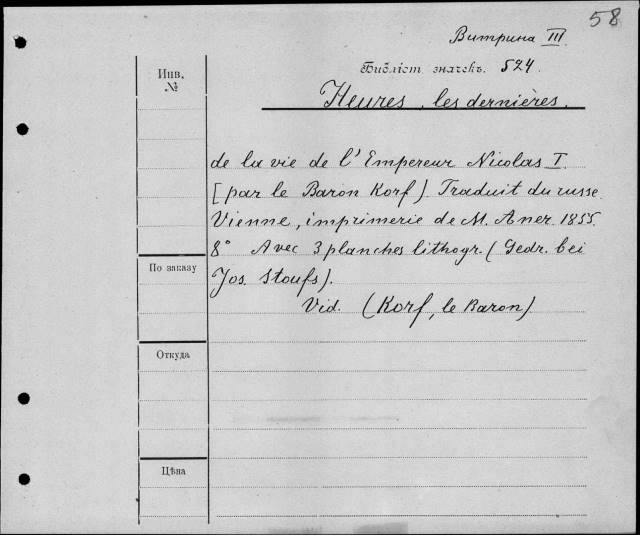 58
Витрина III.
Библіот. значекъ. 524.
Инв.
№
Heures, les dernières.
de la vie de l'Empereur Nicolas I.
[par le Baron Korf). Traduit du russe.
Vienne, imprimerie de M. Auer. 1855.
8° Avec 3 planches lithogr. (Gedr. bei
Jos. Stoufs).
Vid. (Korf, le Baron)
По заказу
Откуда
Цѣна